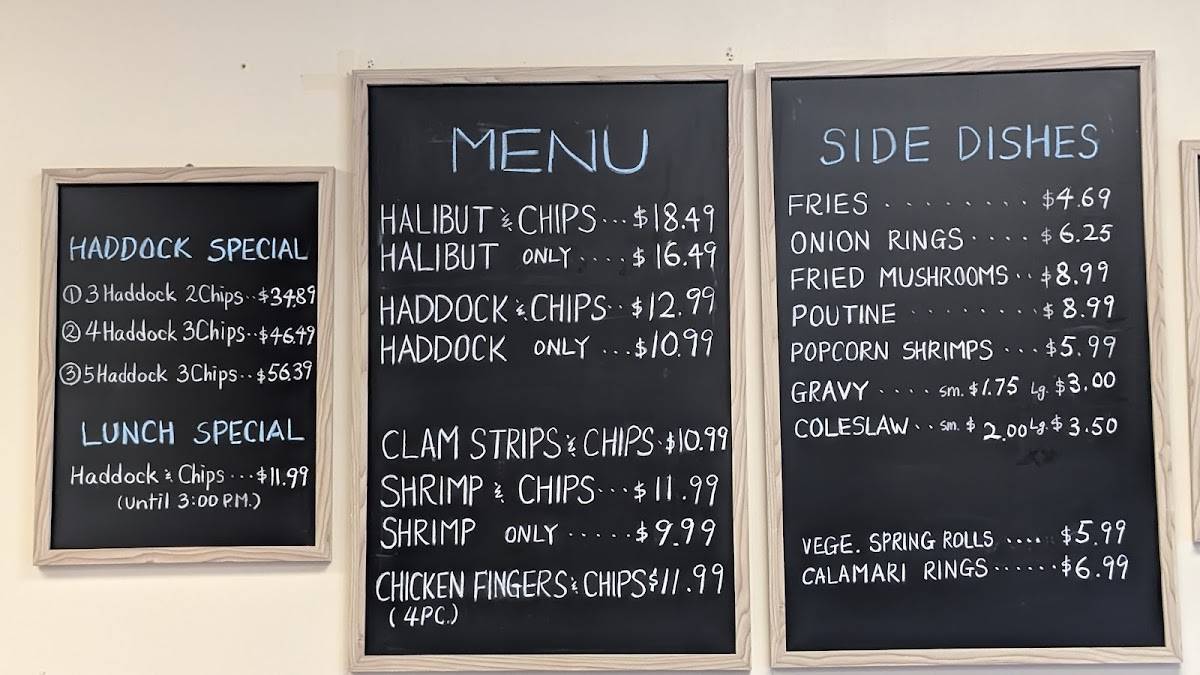 HADDOCK SPECIAL
① 3 Haddock 2 Chips..$34.89
② 4 Haddock 3 Chips..$46.49
③ 5 Haddock 3 Chips..$56.39
LUNCH SPECIAL
Haddock & Chips...$11.99
(until 3:00 P.M.)
MENU
HALIBUT & CHIPS...$18.49
HALIBUT ONLY....$16.49
HADDOCK & CHIPS..$12.99
HADDOCK ONLY...$10.99
CLAM STRIPS & CHIPS.$10.99
SHRIMP & CHIPS...$11.99
SHRIMP ONLY.....$9.99
CHICKEN FINGERS & CHIPS $11.99
(4PC.)
SIDE DISHES
FRIES ........ $4.69
ONION RINGS....$6.25
FRIED MUSHROOMS..$8.99
POUTINE ........$8.99
POPCORN SHRIMPS ...$5.99
GRAVY .... sm. $1.75 Lg. $3.00
COLESLAW.. sm. $2.00 Lg. $3.50
VEGE. SPRING ROLLS ....$5.99
CALAMARI RINGS......$6.99